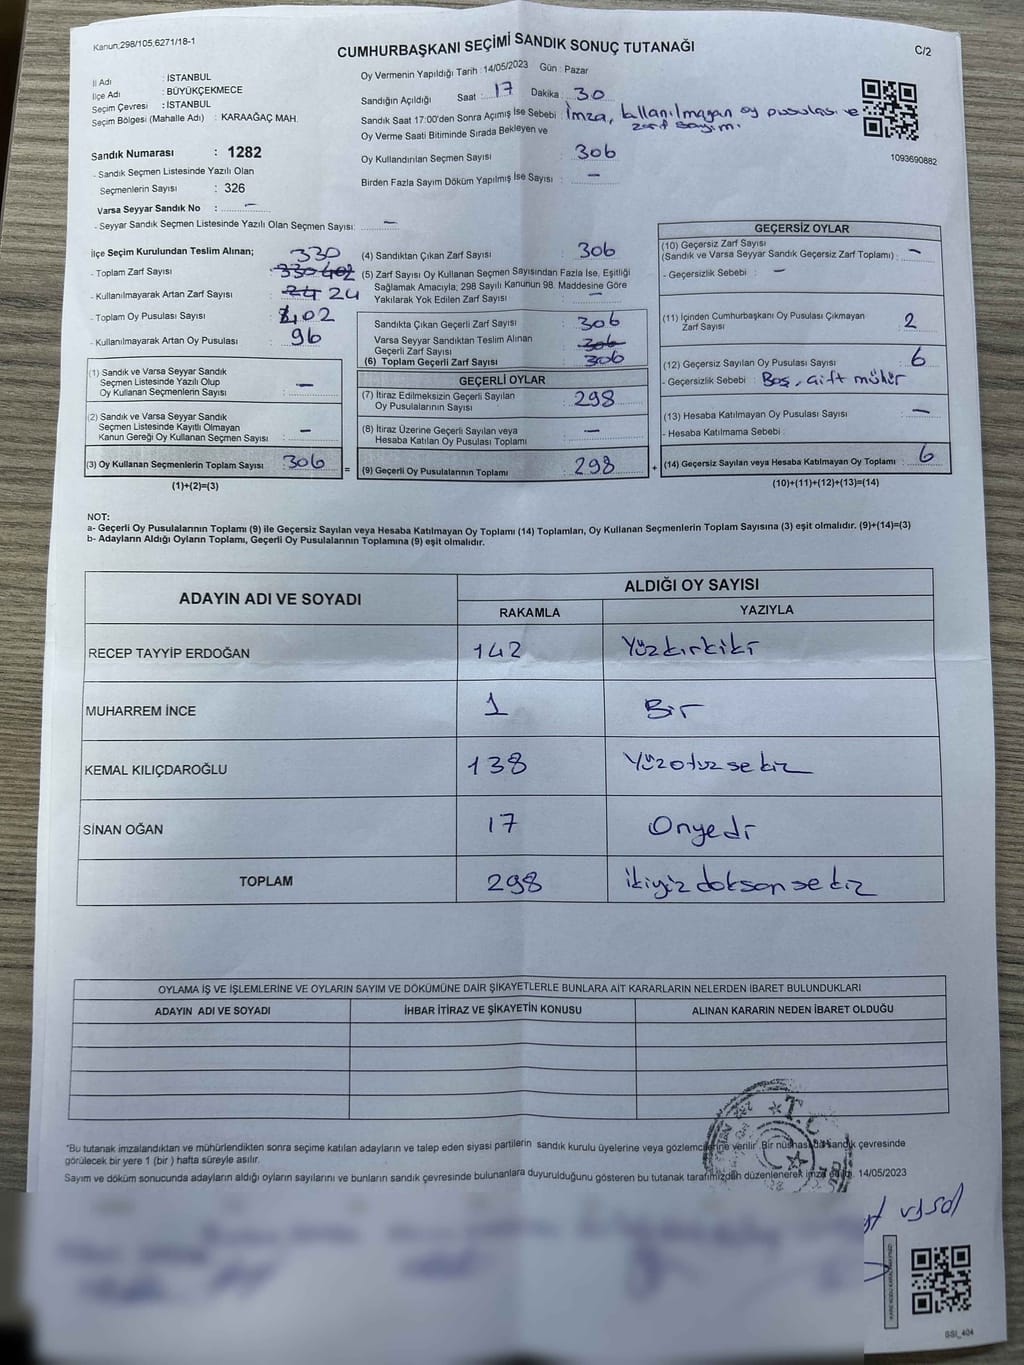 Kanun;298/105,6271/18-1
CUMHURBAŞKANI SEÇİMİ SANDIK SONUÇ TUTANAĞI
C/2
İl Adı : İSTANBUL
İlçe Adı : BÜYÜKÇEKMECE
Seçim Çevresi : İSTANBUL
Seçim Bölgesi (Mahalle Adı) : KARAAĞAÇ MAH.
Oy Vermenin Yapıldığı Tarih : 14/05/2023 Gün : Pazar
Sandığın Açıldığı Saat : 17 Dakika : 30
Sandık Saat 17:00'den Sonra Açımış İse Sebebi : İmza, kullanılmayan oy pusulası ve zarf sayım.
Oy Verme Saati Bitiminde Sırada Bekleyen ve
Oy Kullandırılan Seçmen Sayısı : 306
Birden Fazla Sayım Döküm Yapılmış İse Sayısı : –
1093690882
Sandık Numarası : 1282
- Sandık Seçmen Listesinde Yazılı Olan
Seçmenlerin Sayısı : 326
Varsa Seyyar Sandık No : –
- Seyyar Sandık Seçmen Listesinde Yazılı Olan Seçmen Sayısı: –
İlçe Seçim Kurulundan Teslim Alınan; 330
- Toplam Zarf Sayısı : 330 402
- Kullanılmayarak Artan Zarf Sayısı : 24 24
- Toplam Oy Pusulası Sayısı : 402
- Kullanılmayarak Artan Oy Pusulası : 96
(1) Sandık ve Varsa Seyyar Sandık
Seçmen Listesinde Yazılı Olup
Oy Kullanan Seçmenlerin Sayısı : –
(2) Sandık ve Varsa Seyyar Sandık
Seçmen Listesinde Kayıtlı Olmayan
Kanun Gereği Oy Kullanan Seçmen Sayısı : –
(3) Oy Kullanan Seçmenlerin Toplam Sayısı : 306
(1)+(2)=(3)
=
(4) Sandıktan Çıkan Zarf Sayısı : 306
(5) Zarf Sayısı Oy Kullanan Seçmen Sayısından Fazla İse, Eşitliği
Sağlamak Amacıyla; 298 Sayılı Kanunun 98. Maddesine Göre
Yakılarak Yok Edilen Zarf Sayısı : –
Sandıkta Çıkan Geçerli Zarf Sayısı : 306
Varsa Seyyar Sandıktan Teslim Alınan
Geçerli Zarf Sayısı : 306
(6) Toplam Geçerli Zarf Sayısı : 306
GEÇERLİ OYLAR
(7) İtiraz Edilmeksizin Geçerli Sayılan
Oy Pusulalarının Sayısı : 298
(8) İtiraz Üzerine Geçerli Sayılan veya
Hesaba Katılan Oy Pusulası Toplamı : –
(9) Geçerli Oy Pusulalarının Toplamı : 298
+
GEÇERSİZ OYLAR
(10) Geçersiz Zarf Sayısı
(Sandık ve Varsa Seyyar Sandık Geçersiz Zarf Toplamı) : –
- Geçersizlik Sebebi : –
(11) İçinden Cumhurbaşkanı Oy Pusulası Çıkmayan
Zarf Sayısı : 2
(12) Geçersiz Sayılan Oy Pusulası Sayısı : 6
- Geçersizlik Sebebi : Boş, çift mühür
(13) Hesaba Katılmayan Oy Pusulası Sayısı : –
- Hesaba Katılmama Sebebi :
(14) Geçersiz Sayılan veya Hesaba Katılmayan Oy Toplamı : 6
(10)+(11)+(12)+(13)=(14)
NOT:
a- Geçerli Oy Pusulalarının Toplamı (9) ile Geçersiz Sayılan veya Hesaba Katılmayan Oy Toplamı (14) Toplamları, Oy Kullanan Seçmenlerin Toplam Sayısına (3) eşit olmalıdır. (9)+(14)=(3)
b- Adayların Aldığı Oyların Toplamı, Geçerli Oy Pusulalarının Toplamına (9) eşit olmalıdır.
ADAYIN ADI VE SOYADI ALDIĞI OY SAYISI
RAKAMLA YAZIYLA
RECEP TAYYİP ERDOĞAN 142 Yüzkırkiki
MUHARREM İNCE 1 Bir
KEMAL KILIÇDAROĞLU 138 Yüzotuzsekiz
SİNAN OĞAN 17 Onyedi
TOPLAM 298 ikiyüzdoksansekiz
OYLAMA İŞ VE İŞLEMLERİNE VE OYLARIN SAYIM VE DÖKÜMÜNE DAİR ŞİKAYETLERLE BUNLARA AİT KARARLARIN NELERDEN İBARET BULUNDUKLARI
ADAYIN ADI VE SOYADI İHBAR İTİRAZ VE ŞİKAYETİN KONUSU ALINAN KARARIN NEDEN İBARET OLDUĞU
"Bu tutanak imzalandıktan ve mühürlendikten sonra seçime katılan adayların ve talep eden siyasi partilerin sandık kurulu üyelerine veya gözlemcilerine verilir. Bir nüshası da sandık çevresinde
görülecek bir yere 1 (bir ) hafta süreyle asılır.
Sayım ve döküm sonucunda adayların aldığı oyların sayılarını ve bunların sandık çevresinde bulunanlara duyurulduğunu gösteren bu tutanak tarafımızdan düzenlenerek imza edildi. 14/05/2023
T.C.
SSI_404